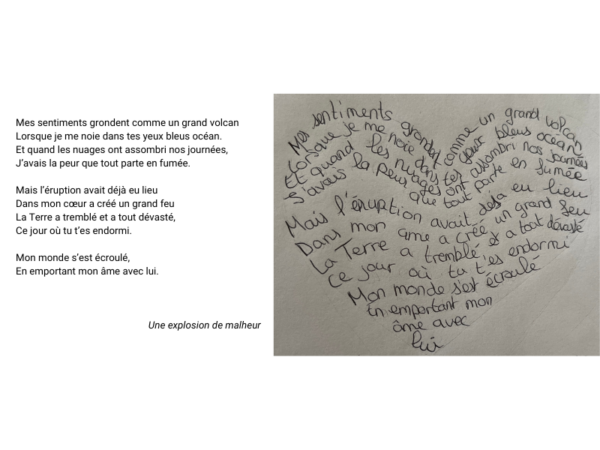 Mes sentiments grondent comme un grand volcan
Lorsque je me noie dans tes yeux bleus océan.
Et quand les nuages ont assombri nos journées,
J'avais la peur que tout parte en fumée.
Mais l'éruption avait déjà eu lieu
Dans mon cœur a créé un grand feu
La Terre a tremblé et a tout dévasté,
Ce jour où tu t'es endormi.
Mon monde s'est écroulé,
En emportant mon âme avec lui.
Une explosion de malheur
Mes sentiments grondent comme un grand volcan
Lorsque je me noie dans tes yeux bleus océan
Et quand les nuages ont assombri nos journées
J'avais la peur que tout parte en fumée
Mais l'éruption avait déjà eu lieu
Dans mon ame a créé un grand feu
La Terre a tremblé et a tout dévasté
Ce jour où tu t'es endormi
Mon monde s'est écroulé
En emportant mon
âme avec
lui